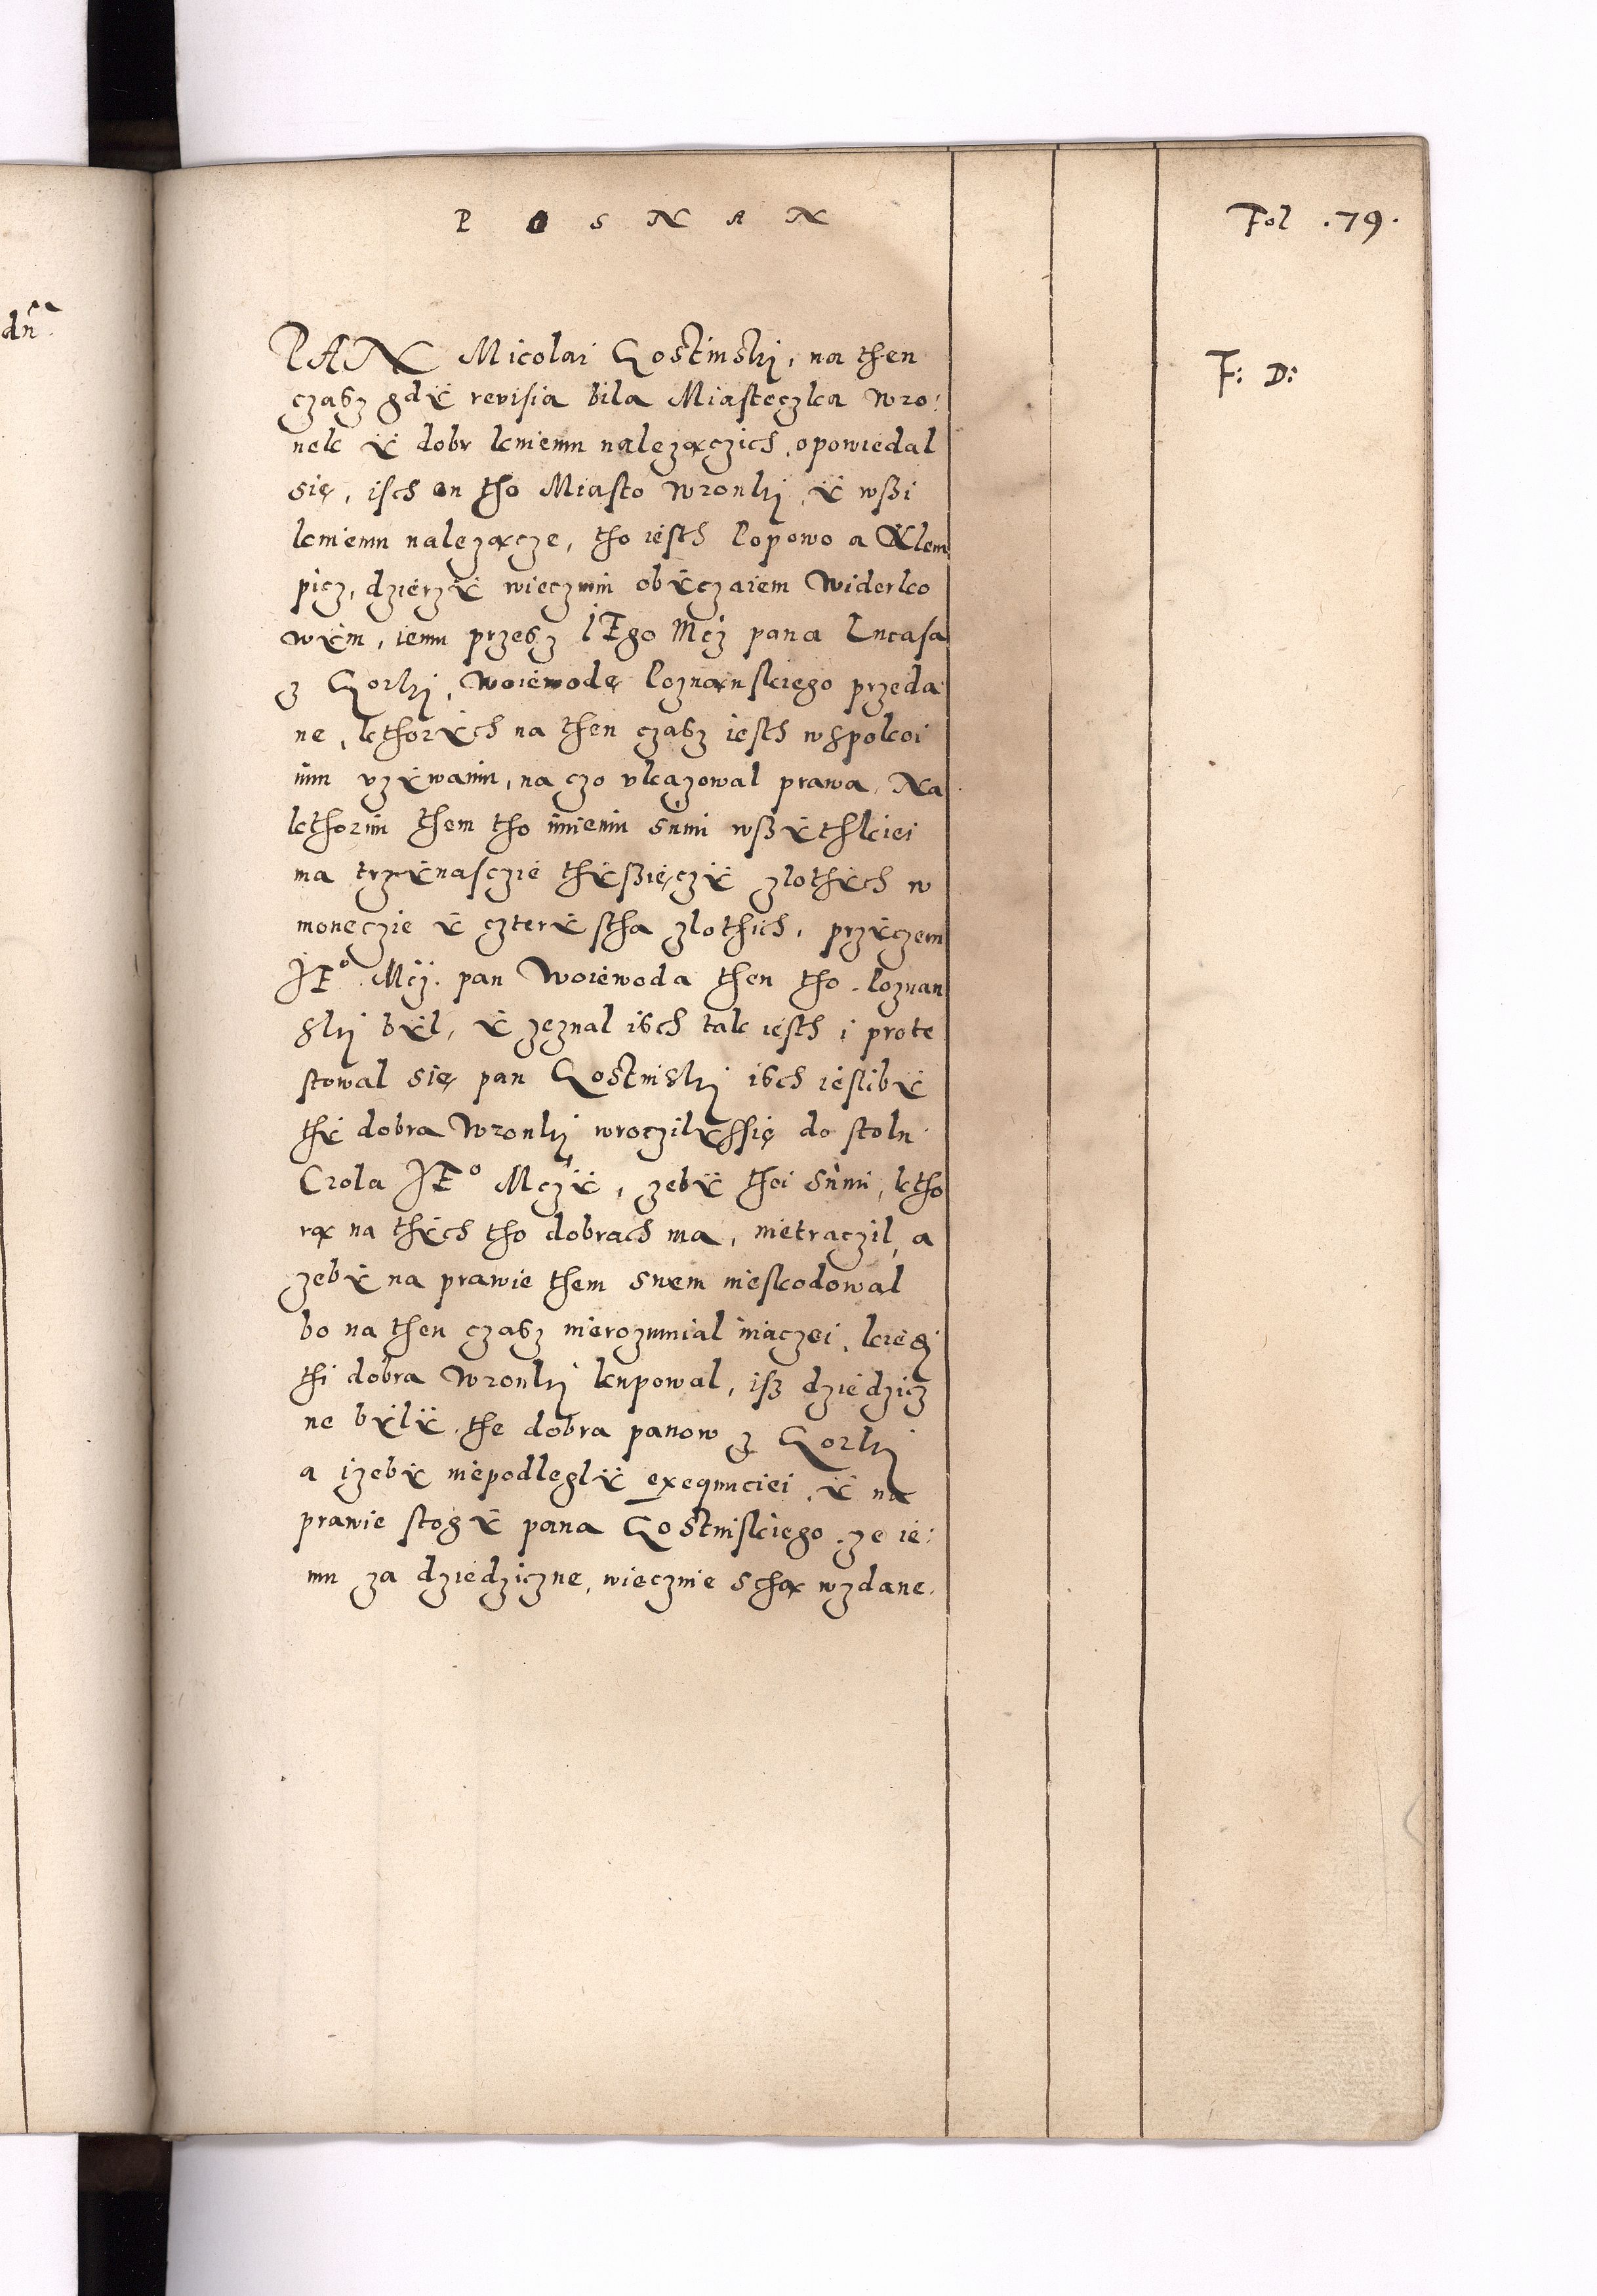 P O S N A N
Fol .79.
dn̄a
F: D:
PAN Micolai Gostinski, na then
czasz gdÿ revisia bila Miasteczka Wro:
nek ÿ dobr kniemu nalezączich, opowiedal
się, isch on tho Miasto Wronki, ÿ wßi
kniemu nalezącze, tho iesth Popowo a Klem
picz, dzierzÿ wiecznim obÿczaiem Widerko
wÿm, iemu przesz IEgo Mcz pana Lucasa
z Gorki, Woiewodę Poznanskiego przeda
ne, kthorÿch na then czasz iesth wspokoi
nim vzÿwaniu, na czo vkazowal prawa. Na
kthorim them tho imieniu sumi wßÿthkiei
ma trzÿnasczie thÿßięczÿ zlothÿch w
moneczie ÿ czterÿ stha zlothich, przÿczem
IEº Mcz. pan Woiewoda then tho Poznan
ski bÿl, ÿ zeznal isch tak iesth i prote
stowal się pan Gostinski isch iestibÿ
thÿ dobra Wronki wroczilÿ ssię do stolu
Crola IEº Mczÿ, zebÿ thei sumi, ktho
rą na thÿch tho dobrach ma, nietraczil, a
zebÿ na prawie them swem nieskodowal
bo na then czasz nierozumial inaczei, kiedi
thi dobra Wronki kupowal, isz dziedzicz
ne bÿlÿ the dobra panow z Gorki
a izebÿ niepodleglÿ exequuciei, ÿ na
prawie stogÿ pana Gostinskiego, ze ie:
mu za dziedziczne, wiecznie scha wzdane.